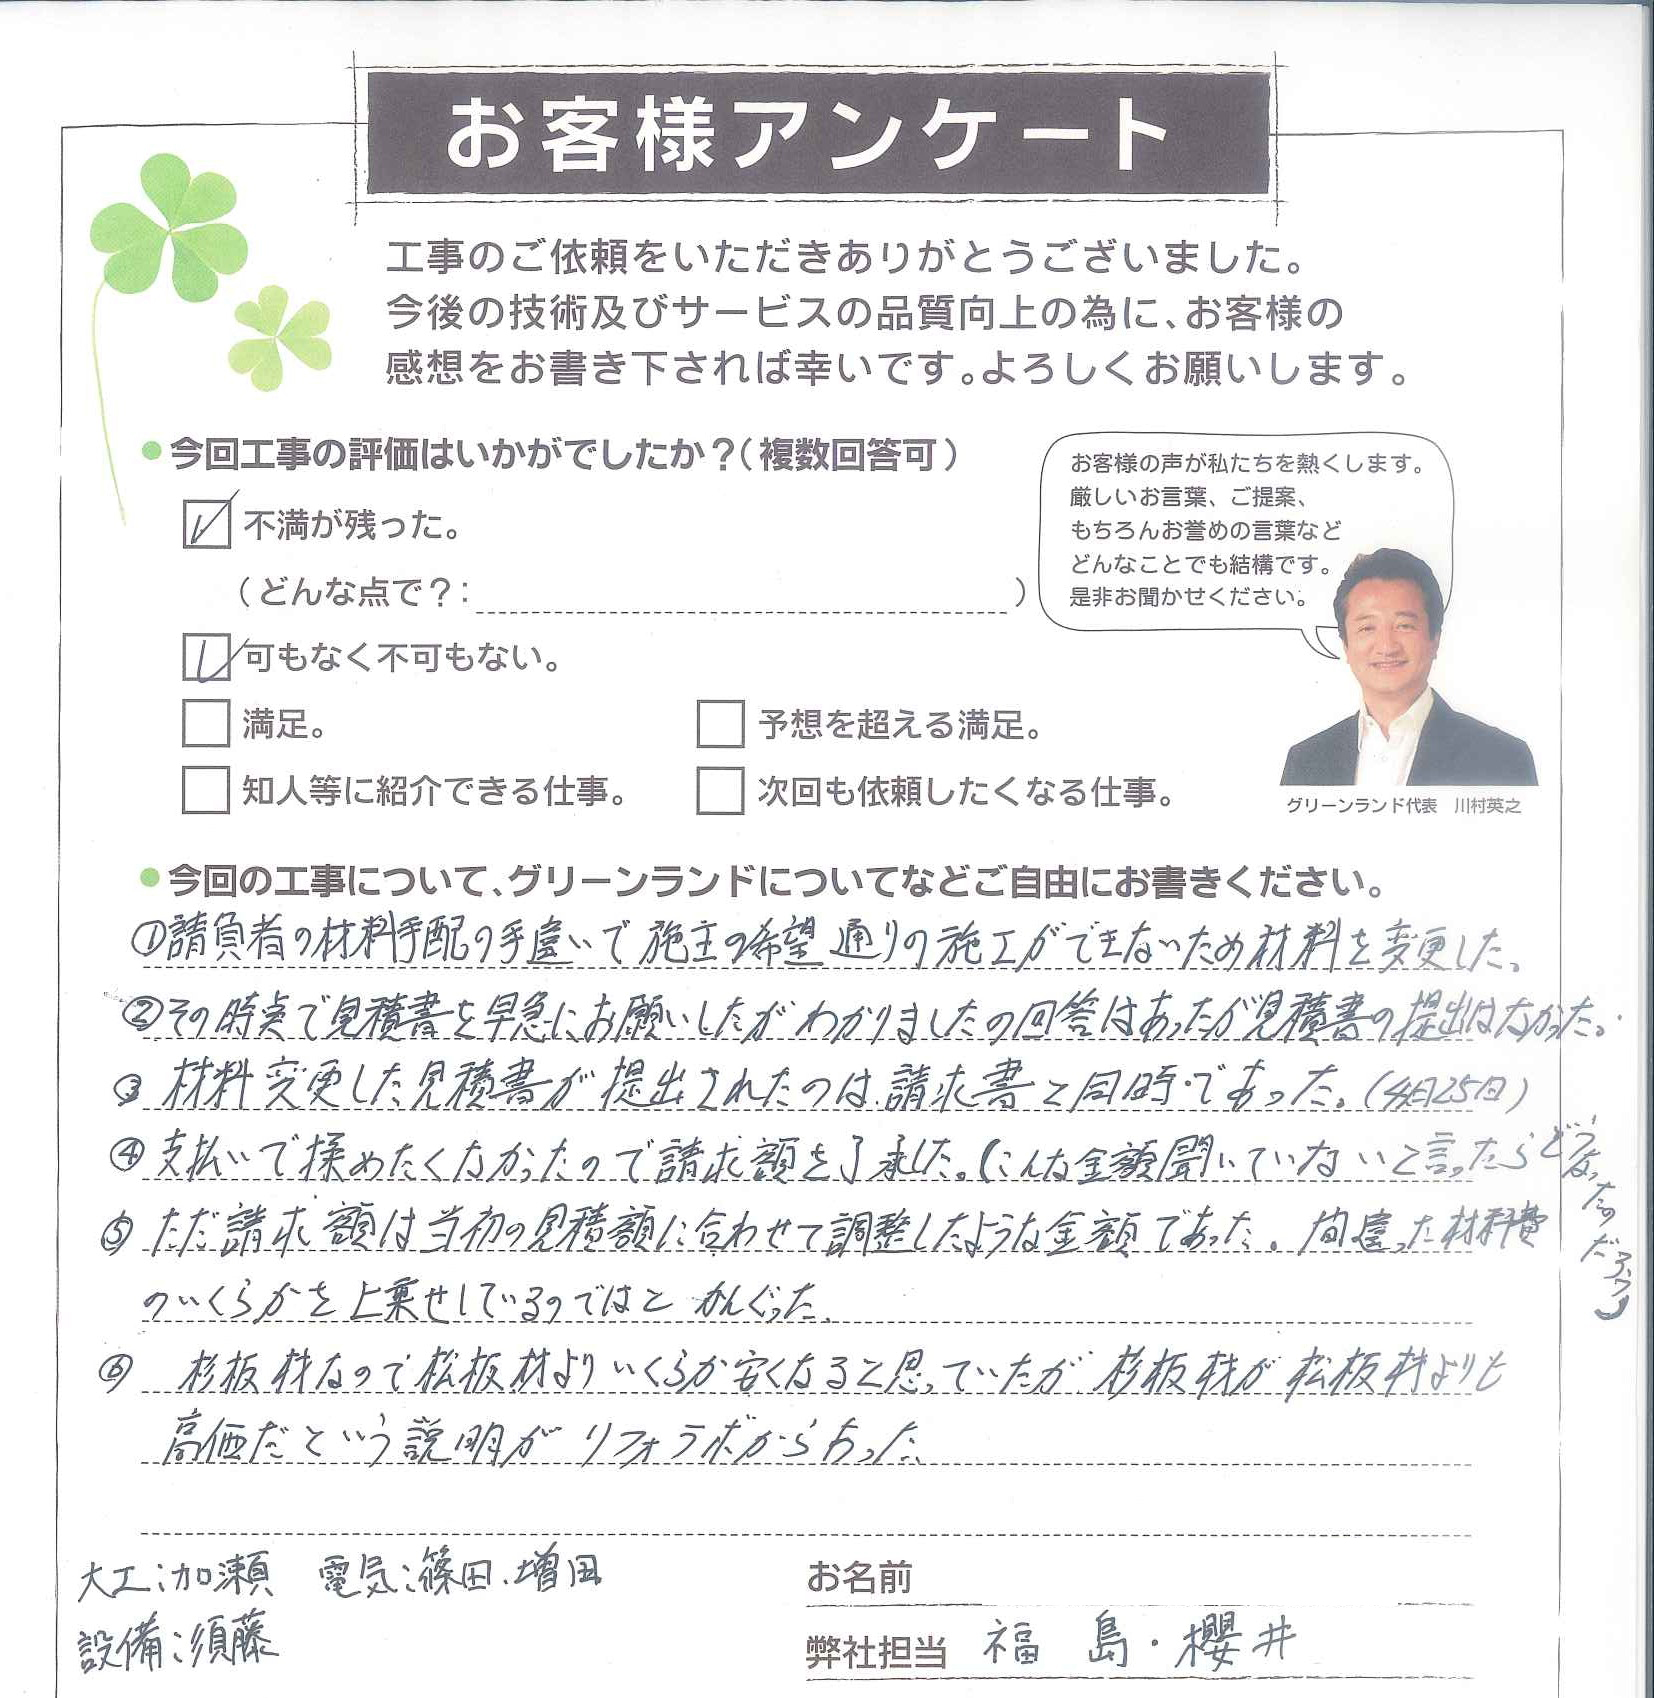 お客様アンケート
工事のご依頼をいただきありがとうございました。
今後の技術及びサービスの品質向上の為に、お客様の
感想をお書き下されば幸いです。よろしくお願いします。
●今回工事の評価はいかがでしたか？（複数回答可）
不満が残った。
（どんな点で？：　）
可もなく不可もない。
満足。
予想を超える満足。
知人等に紹介できる仕事。
次回も依頼したくなる仕事。
お客様の声が私たちを熱くします。
厳しいお言葉、ご提案、
もちろんお誉めの言葉など
どんなことでも結構です。
是非お聞かせください。
グリーンランド代表　川村英之
●今回の工事について、グリーンランドについてなどご自由にお書きください。
①請負者の材料手配の手違いで施主の希望通りの施工ができないため材料を変更した。
②その時点で見積書を早急にお願いしたがわかりましたの回答はあったが見積書の提出はなかった。
③材料変更した見積書が提出されたのは請求書と同時であった。(4月25日)
④支払いで揉めたくなかったので請求額を了承した。(こんな金額聞いていないと言ったらどうなったのだろう)
⑤ただ請求額は当初の見積額に合わせて調整したような金額であった。間違った材料費
のいくらかを上乗せしているのではと かんぐった。
⑥杉板材なので松板材よりいくらか安くなると思っていたが 杉板材が松板材よりも
高価だという説明がリフォラボからあった。
大工:加瀬　電気:篠田、増田
設備:須藤
お名前
弊社担当　福島・櫻井